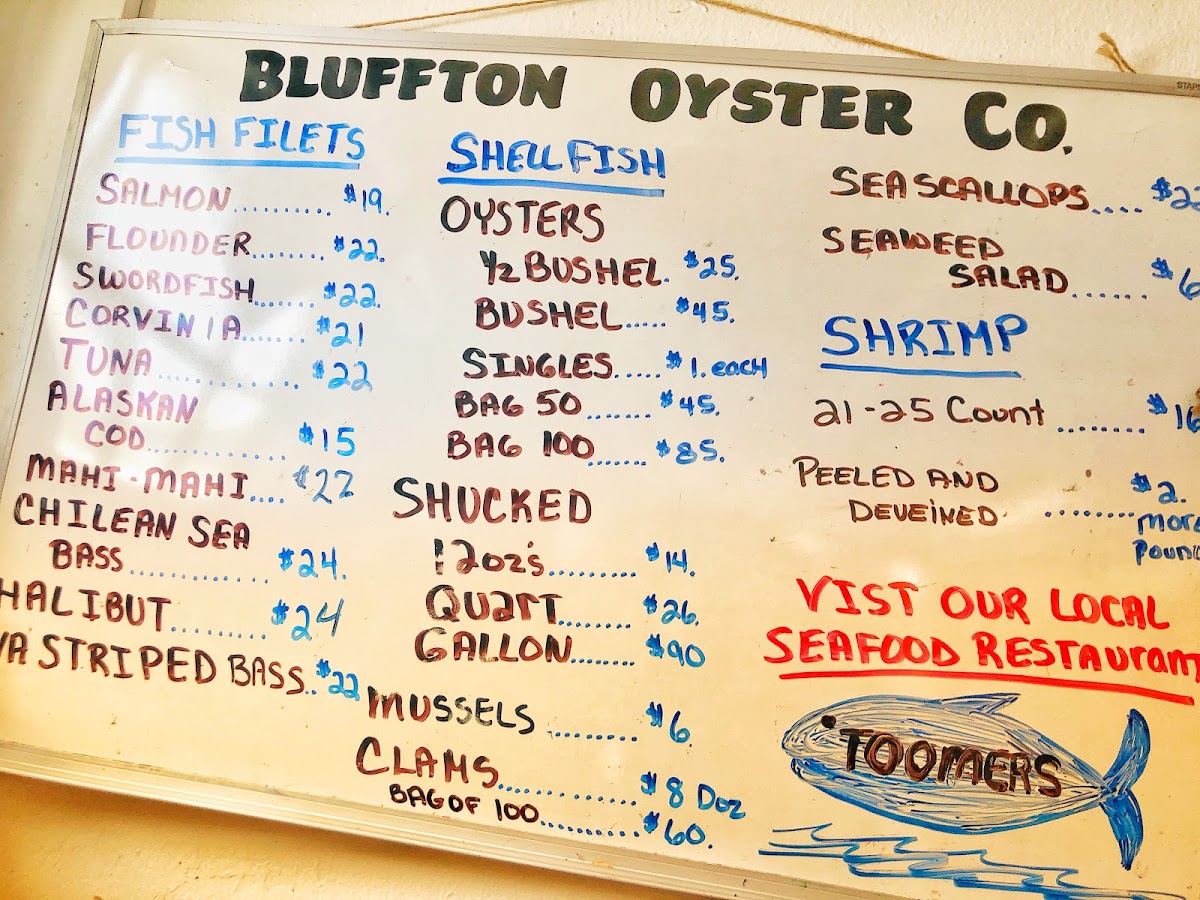 BLUFFTON OYSTER CO.
FISH FILETS
SALMON.......... $19.
FLOUNDER........ $22.
SWORDFISH....... $22.
CORVINIA....... $21
TUNA............ $22
ALASKAN
COD............. $15
MAHI-MAHI.... $22
CHILEAN SEA
BASS............. $24.
HALIBUT.......... $24
VA STRIPED BASS.. $22
SHELLFISH
OYSTERS
1/2 BUSHEL. $25.
BUSHEL..... $45.
SINGLES..... $1.each
BAG 50....... $45.
BAG 100 ....... $85.
SHUCKED
12oz's.......... $14.
QUART........ $26.
GALLON........ $90
MUSSELS ......... $6.
CLAMS............... $8 Doz
BAG OF 100........... $60.
SEA SCALLOPS.... $22
SEAWEED
SALAD...... $6
SHRIMP
21-25 Count ........ $16
PEELED AND $2.
DEVEINED ......... more
pound
VIST OUR LOCAL
SEAFOOD RESTAURANT
TOOMERS